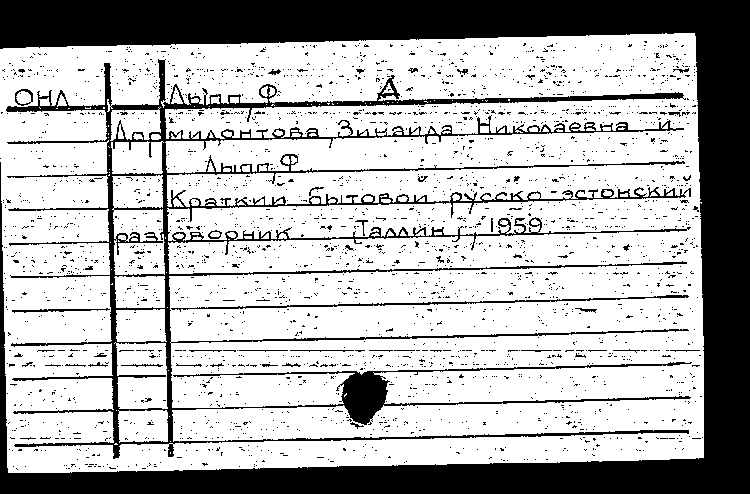 ОНЛ Лыпп, Ф А
Дормидонтова, Зинаида Николаевна и
Лыпп, Ф.
Краткий бытовой русско-эстонский
разговорник. [Таллин], 1959